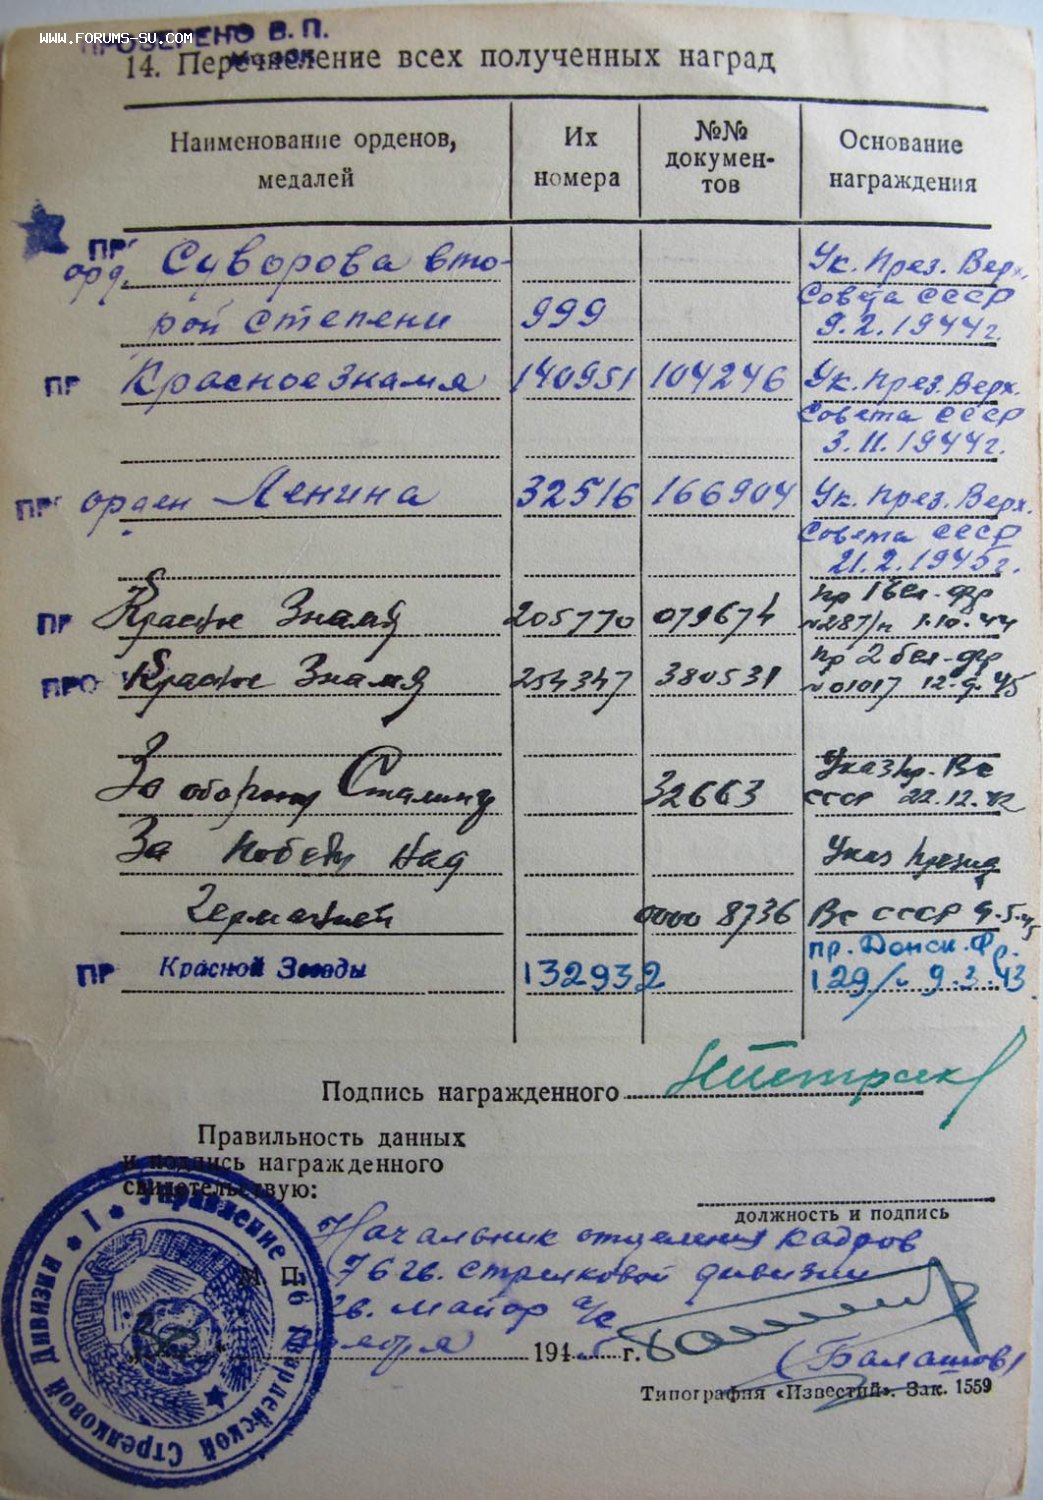 www.forums-su.com
ПРОВЕРЕНО В. П.
14. Перечисление всех полученных наград
Наименование орденов, медалей
Их номера
№№ документов
Основание награждения
ПР
орд. Суворова вто-
Ук. През. Верх.
Совета СССР
рой степени 999 9.2.1944г.
ПР Красное знамя 140951 104246 Ук. През. Верх.
Совета СССР
3.11.1944г.
ПР орден Ленина 32516 166904 Ук. През. Верх.
Совета СССР
21.2.1945г.
пр 1 бел-фр
ПР Красное Знамя 205770 079674 №287/н 1.10.44
пр 2 бел-фр
ПРО Красное Знамя 254347 380531 №01017 12.9.45
Указ пр. ВС
За оборону Сталингр 32663 СССР 22.12.42
За победу над Указ През
Германией 0000 8736 ВС СССР 9.5.45
пр. Донск. Фр.
ПР Красной Звезды 132932 129/н 9.3.43
Подпись награжденного
Правильность данных
и подпись награжденного
свидетельствую:
должность и подпись
Начальник отделения кадров
М. П. 76 гв. стрелковой дивизии
гв. майор а/с
194 г.
(Балашов)
Управление 76 Гвардейской Стрелковой Дивизии * 1 *
Типография «Известий». Зак. 1559